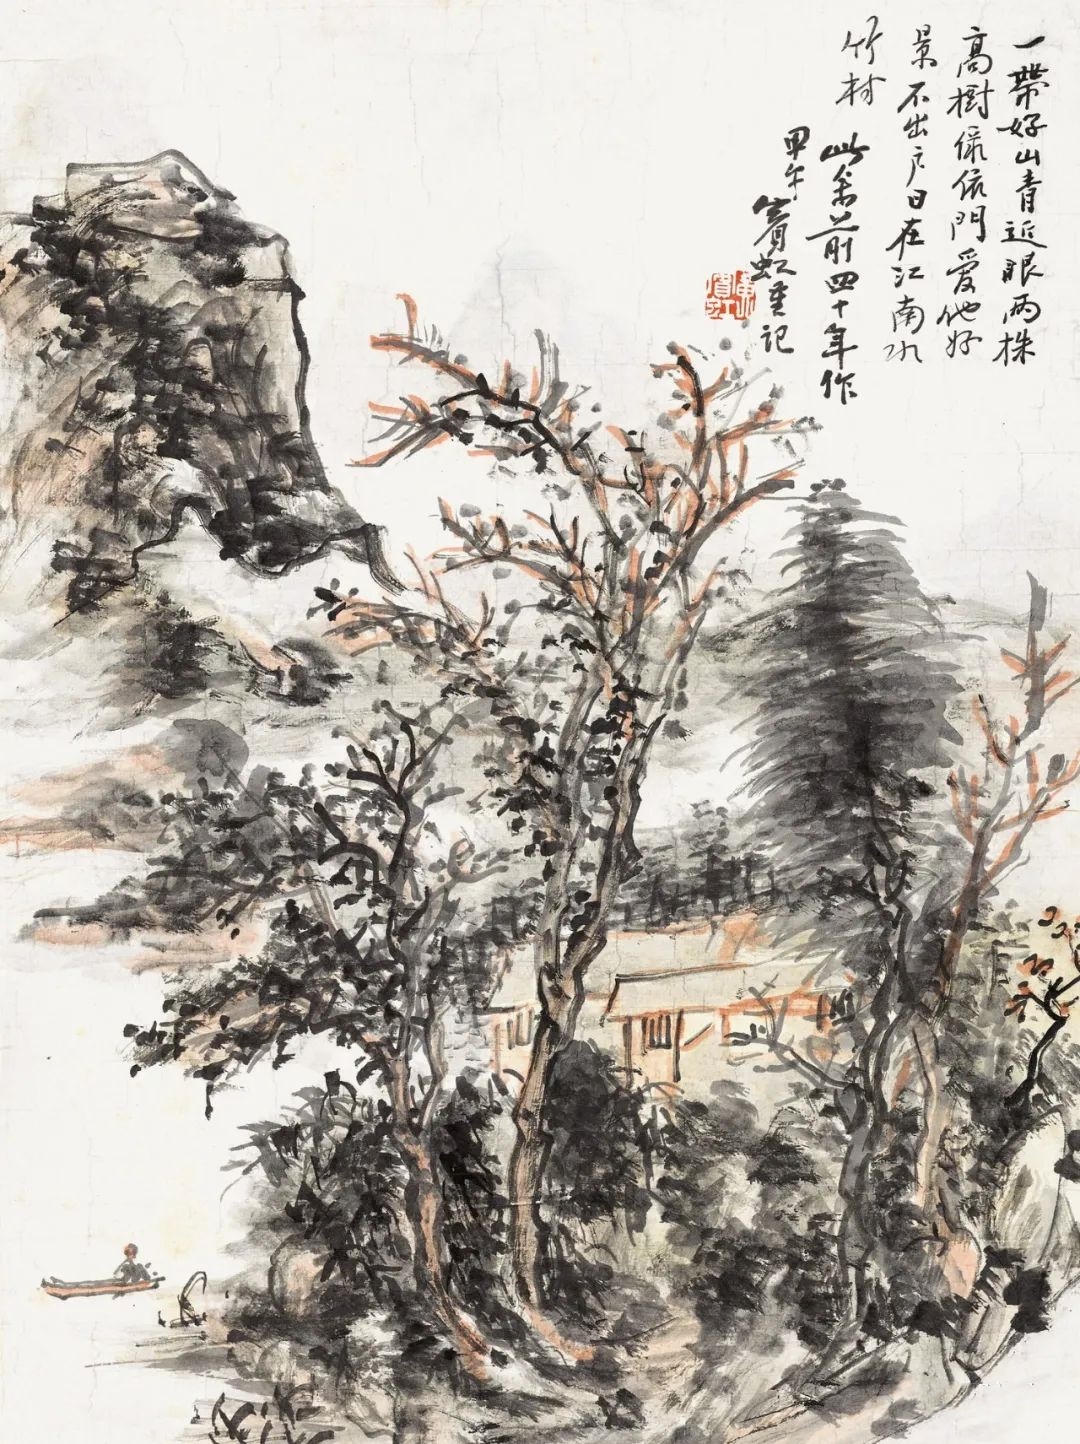 一帶好山青近眼兩株
高樹綠依門愛他好
景不出户日在江南水
竹村
此余前四十年作
甲午賓虹重記